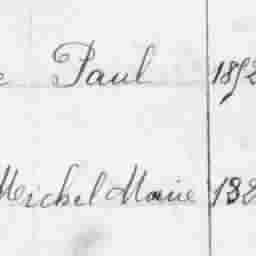 e Paul 1892
Meichel Marie 188